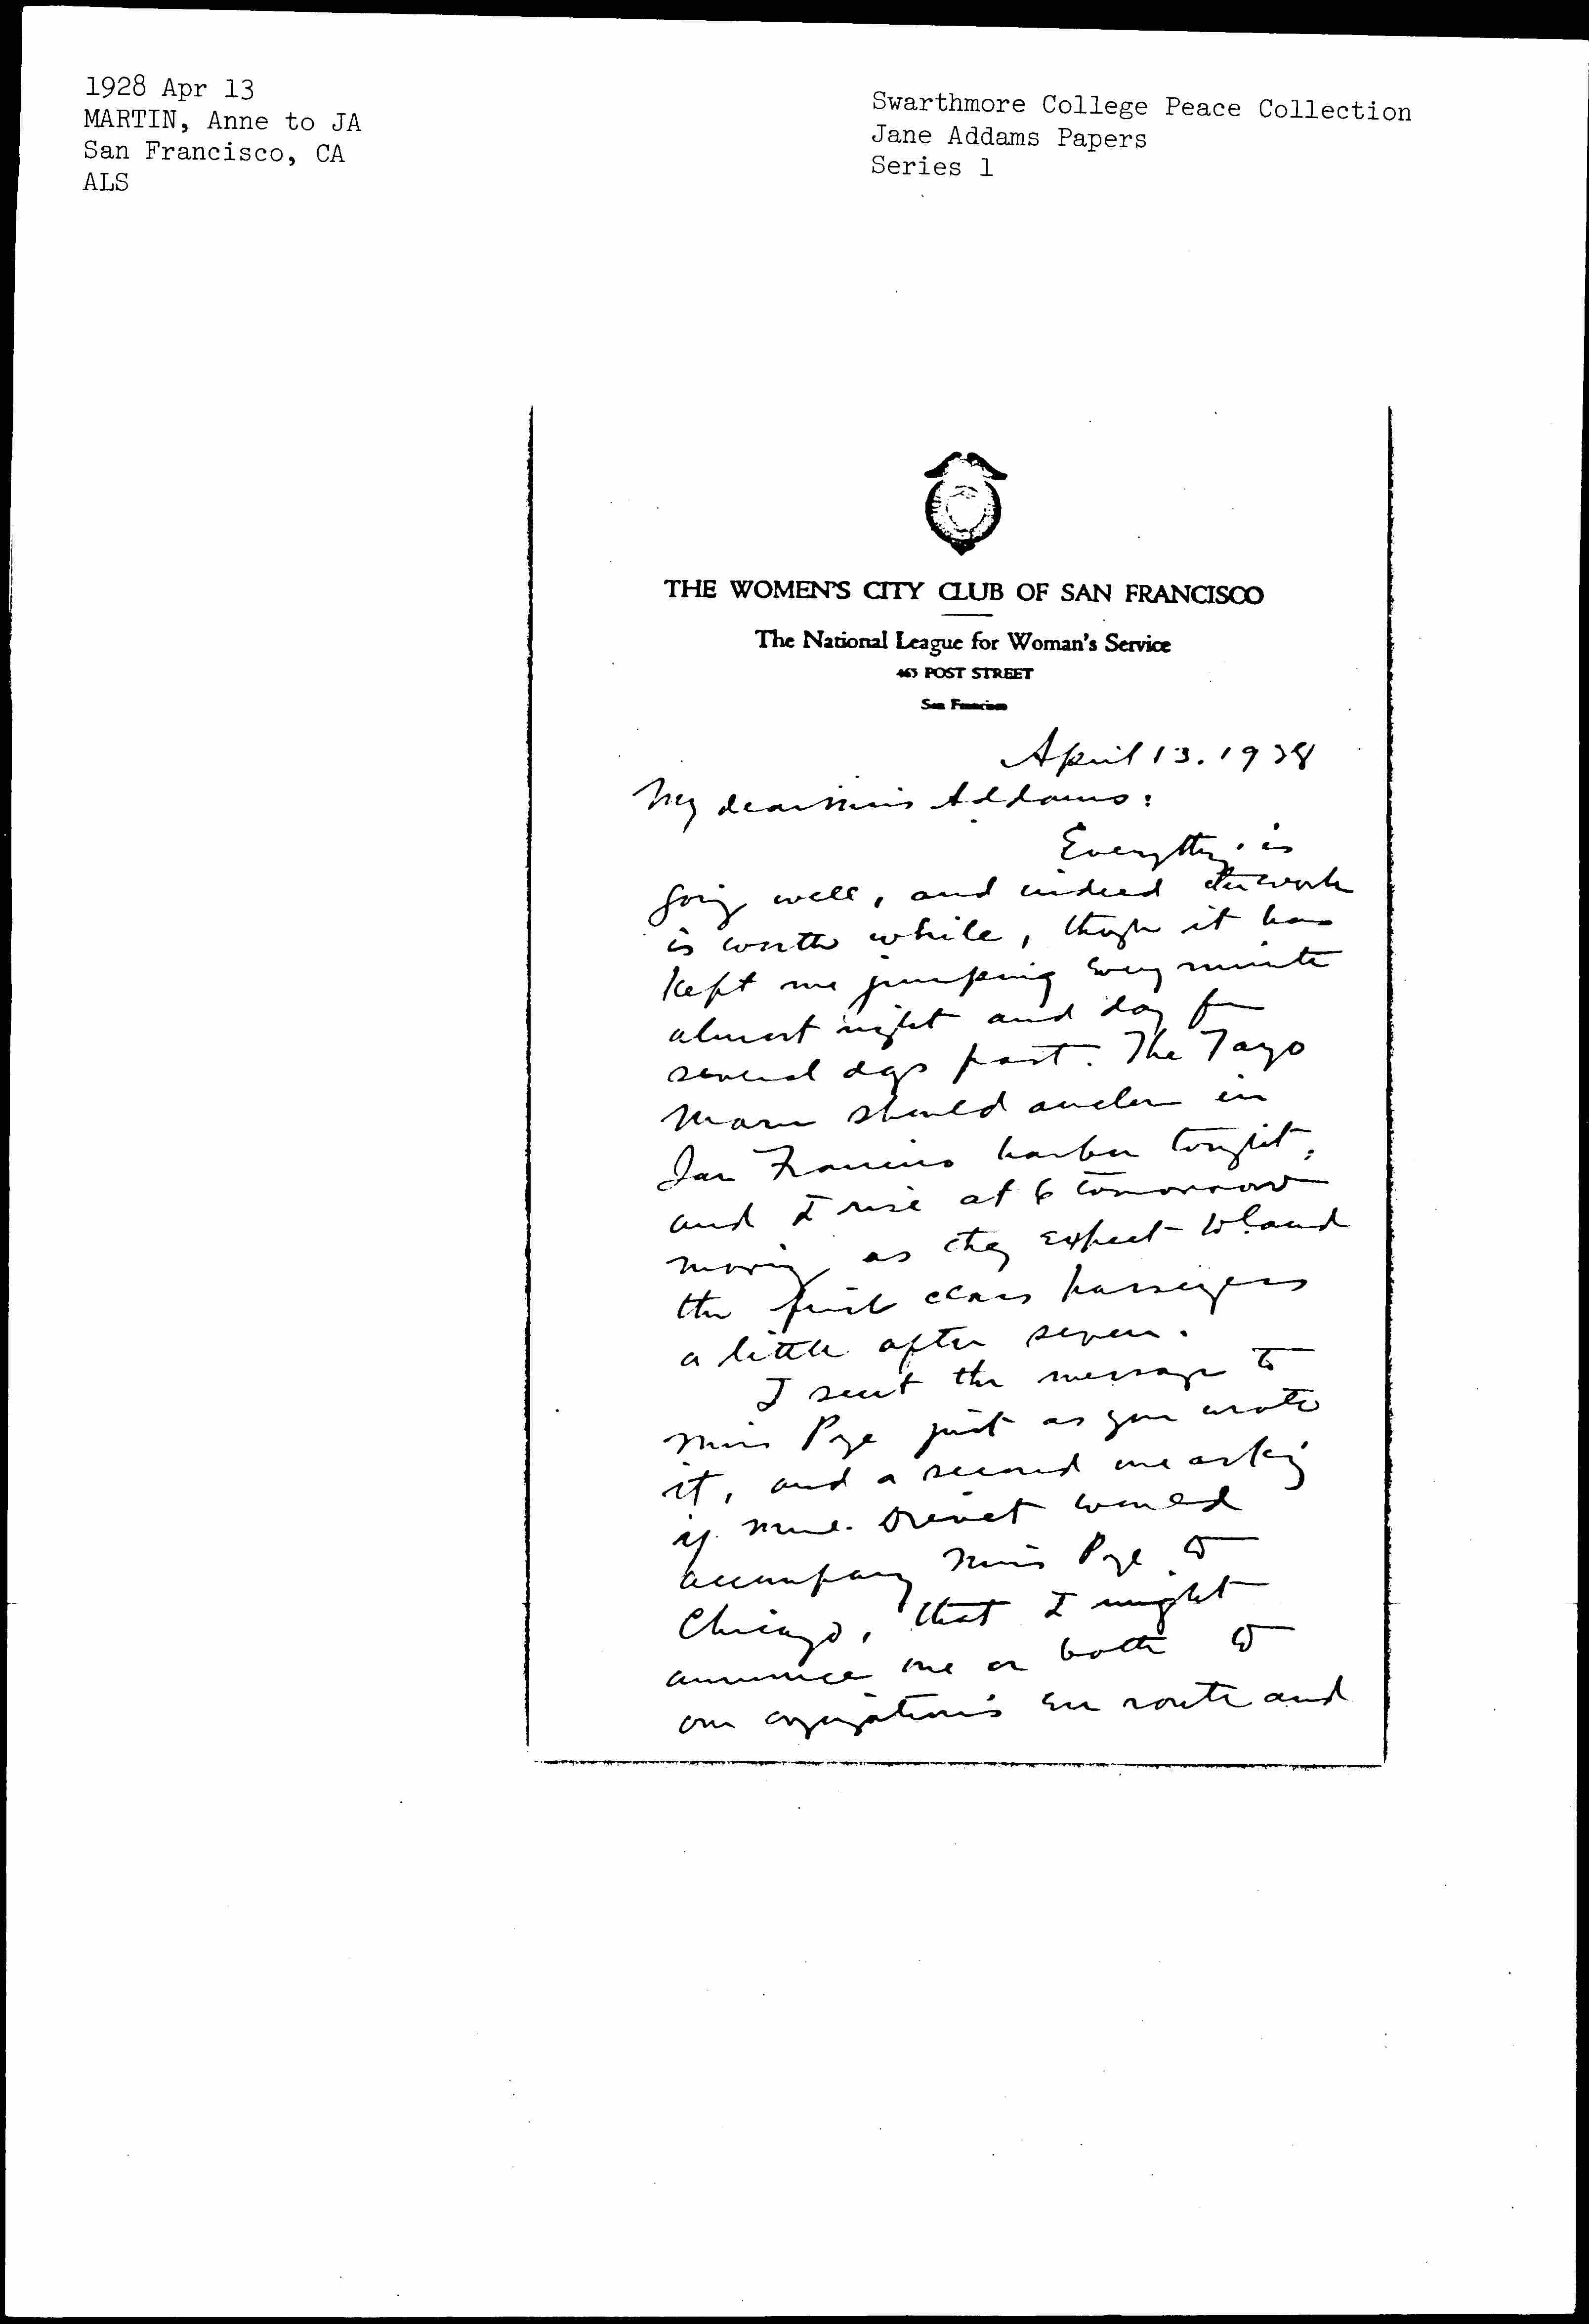 1928 Apr 13
MARTIN, Anne to JA
San Francisco, CA
ALS
Swarthmore College Peace Collection
Jane Addams Papers
Series 1
THE WOMEN'S CITY CLUB OF SAN FRANCISCO
The National League for Woman's Service
465 POST STREET
San Francisco
April 13. 1928
My dear Miss Addams:
Everything is
going well, and indeed the work
is worth while, though it has
kept me jumping every minute
almost night and day for
several days past. The Taiyo
Maru should anchor in
San Francisco harbor tonight,
and I rise at 6 tomorrow
morning as they expect to land
the first class passengers
a little after seven.
I sent the message to
Miss Pye just as you wrote
it, and a second one asking
if Mme. Drevet would
accompany Miss Pye to
Chicago, that I might
announce one or both to
our organizations en route and